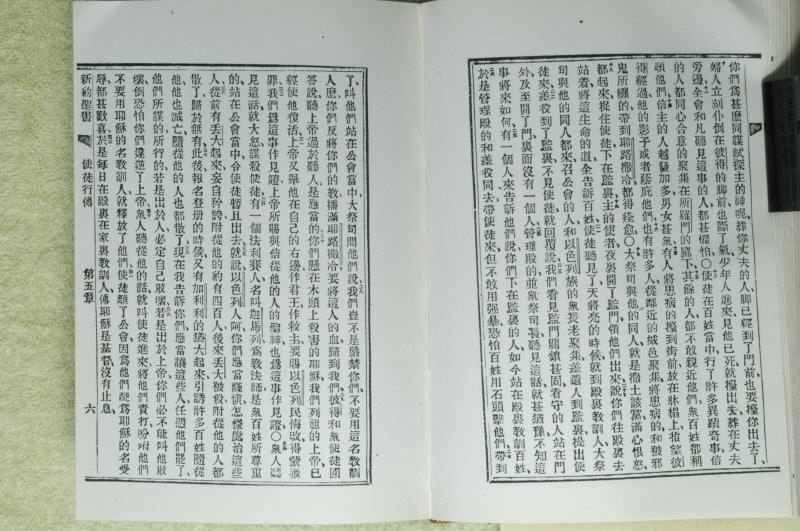 你們為甚麼同謀試探主的神呢、葬你丈夫的人、脚已經到了門前、也要擡你出去了、
婦人立刻仆倒在彼得的脚前、也斷了氣、少年人進來、見他已死、就擡出去、葬在丈夫
旁邊、全會和凡聽見這事的人、都甚懼怕○使徒在百姓當中、行了許多異蹟奇事、信
的人、都同心合意的聚集在所羅門的廊下、其餘的人、都不敢親近他們、衆百姓都稱
頌他們、信主的人越發加多、男女甚衆、有人將患病的擡到街前、放在牀榻上、指望彼
得經過、他的影子或者蔭庇他們、也有許多人、從鄰近的城邑聚集、將患病的、和被邪
鬼所纏的、帶到耶路撒冷、都得痊愈○大祭司與他的同人、就是撒土該黨、滿心恨怒、
都起來、捉住使徒、下在監裏、主的使者夜裏開了監門、領他們出來、說你們往殿裏去
站着、將這生命的道、全告訴百姓、使徒聽見了、天將亮的時候、就到殿裏教訓人、大祭
司與他的同人都來、召公會的人、和以色列族的衆長老聚集、差遣人到監裏提出使
徒來、差役到了監裏、不見使徒、就回覆說、我們看見監門關鎖甚固、看守的人站在門
外、及至開了門、裏面沒有一個人、管理殿的、並衆祭司長、聽見這話、就甚猶豫、不知這
事將來如何、有一個人來告訴他們說、你們下在監裏的人、如今站在殿裏教訓百姓、
於是管理殿的和差役同去、帶使徒來、但不敢用强暴、恐怕百姓用石頭擊他們、帶到
了、叫他們站在公會當中、大祭司問他們說、我們豈不是嚴禁你們、不要用這名教訓
人麼、你們反將你們的教、播滿耶路撒冷、要將這人的血歸到我們、彼得和衆使徒回
答說、聽上帝過於聽人、是應當的、你們懸在木頭上殺害的耶穌、我們列祖的上帝已
經使他復活、上帝又舉他在自己的右邊、作君王、作救主、要賜以色列民悔改、得蒙赦
罪、我們為這事作見證、上帝所賜與信從他的人的聖神、也為這事作見證○衆人聽
見這話、就大怒、謀殺使徒、有一個法利賽人、名叫迦馬列、為教法師、是衆百姓所尊重
的、站在公會當中、令使徒暫且出去、就說、以色列人阿、你們應當謹慎、怎樣處治這些
人、從前有丟大起來、妄自矜誇、附從他的約有四百人、後來丟大被殺、附從他的人都
散了、歸於無有、此後報名登册的時候、又有加利利的猶大起來、引誘許多百姓隨從
他、他也滅亡、隨從他的人也都散了、現在我告訴你們、應當讓這些人、任憑他們罷了、
他們所謀的所行的、若是出於人、必定自己敗壞、若是出於上帝、你們必不能叫他敗
壞、倒恐怕你們違逆了上帝、衆人聽從他的話、就叫使徒進來、將他們責打、吩咐他們
不要用耶穌的名教訓人、就釋放了他們、使徒離了公會、因為他們能為耶穌的名受
辱、都甚歡喜、於是每日在殿裏在家裏教訓人、傳耶穌是基督、沒有止息、
新約聖書 使徒行傳 第五章 六